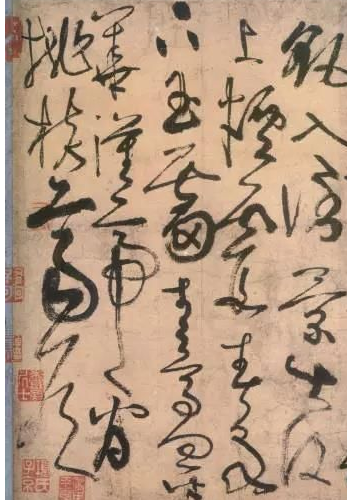 飖入倒景出沒
上煙霞春泉
下玉霤青鳥向金
華漢帝看
桃核齊侯